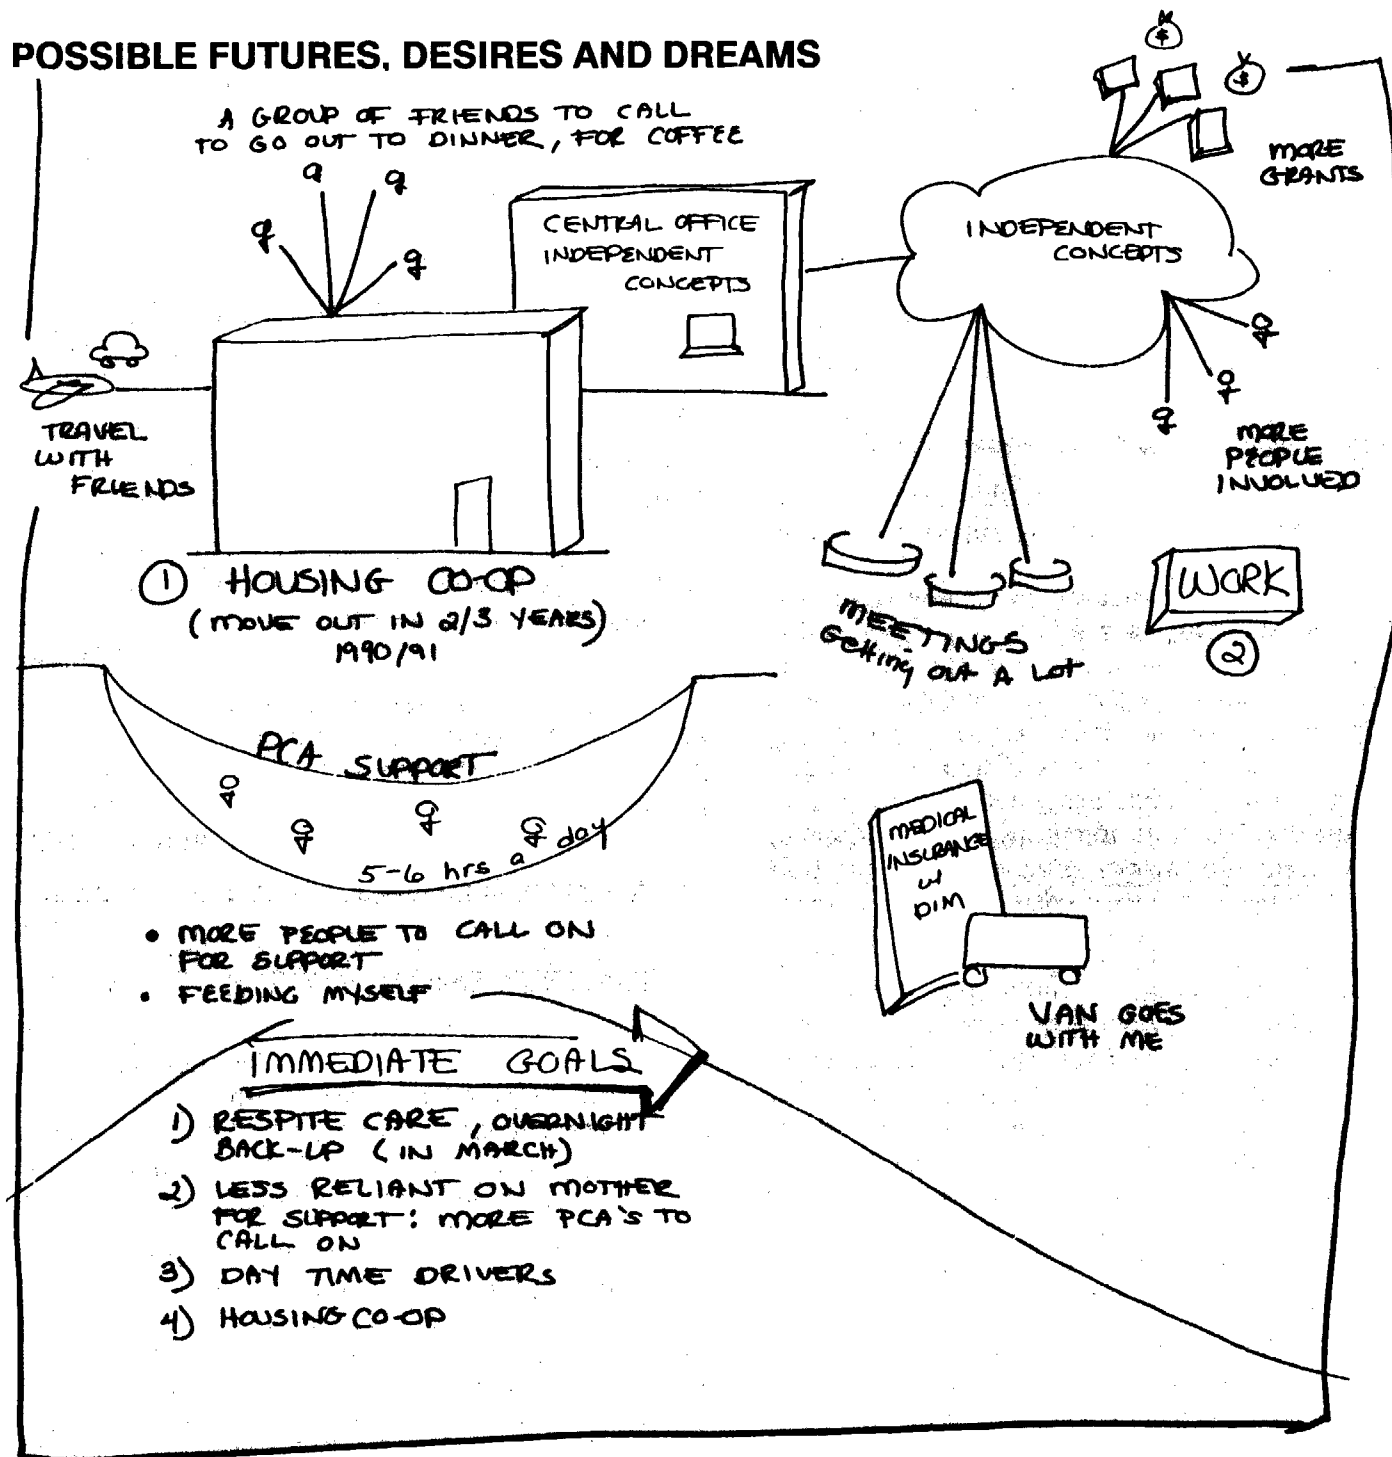 POSSIBLE FUTURES, DESIRES AND DREAMS
A GROUP OF FRIENDS TO CALL
TO GO OUT TO DINNER, FOR COFFEE
$
$
MORE
GRANTS
CENTRAL OFFICE
INDEPENDENT
CONCEPTS
INDEPENDENT
CONCEPTS
TRAVEL
WITH
FRIENDS
MORE
PEOPLE
INVOLVED
1 HOUSING CO-OP
(MOVE OUT IN 2/3 YEARS)
1990/91
MEETINGS
Getting out A Lot
WORK
2
PCA SUPPORT
5-6 hrs a day
MEDICAL
INSURANCE
W/
DIM
VAN GOES
WITH ME
• MORE PEOPLE TO CALL ON
FOR SUPPORT
• FEEDING MYSELF
IMMEDIATE GOALS
1) RESPITE CARE, OVERNIGHT
BACK-UP (IN MARCH)
2) LESS RELIANT ON MOTHER
FOR SUPPORT: MORE PCA'S TO
CALL ON
3) DAY TIME DRIVERS
4) HOUSING CO-OP